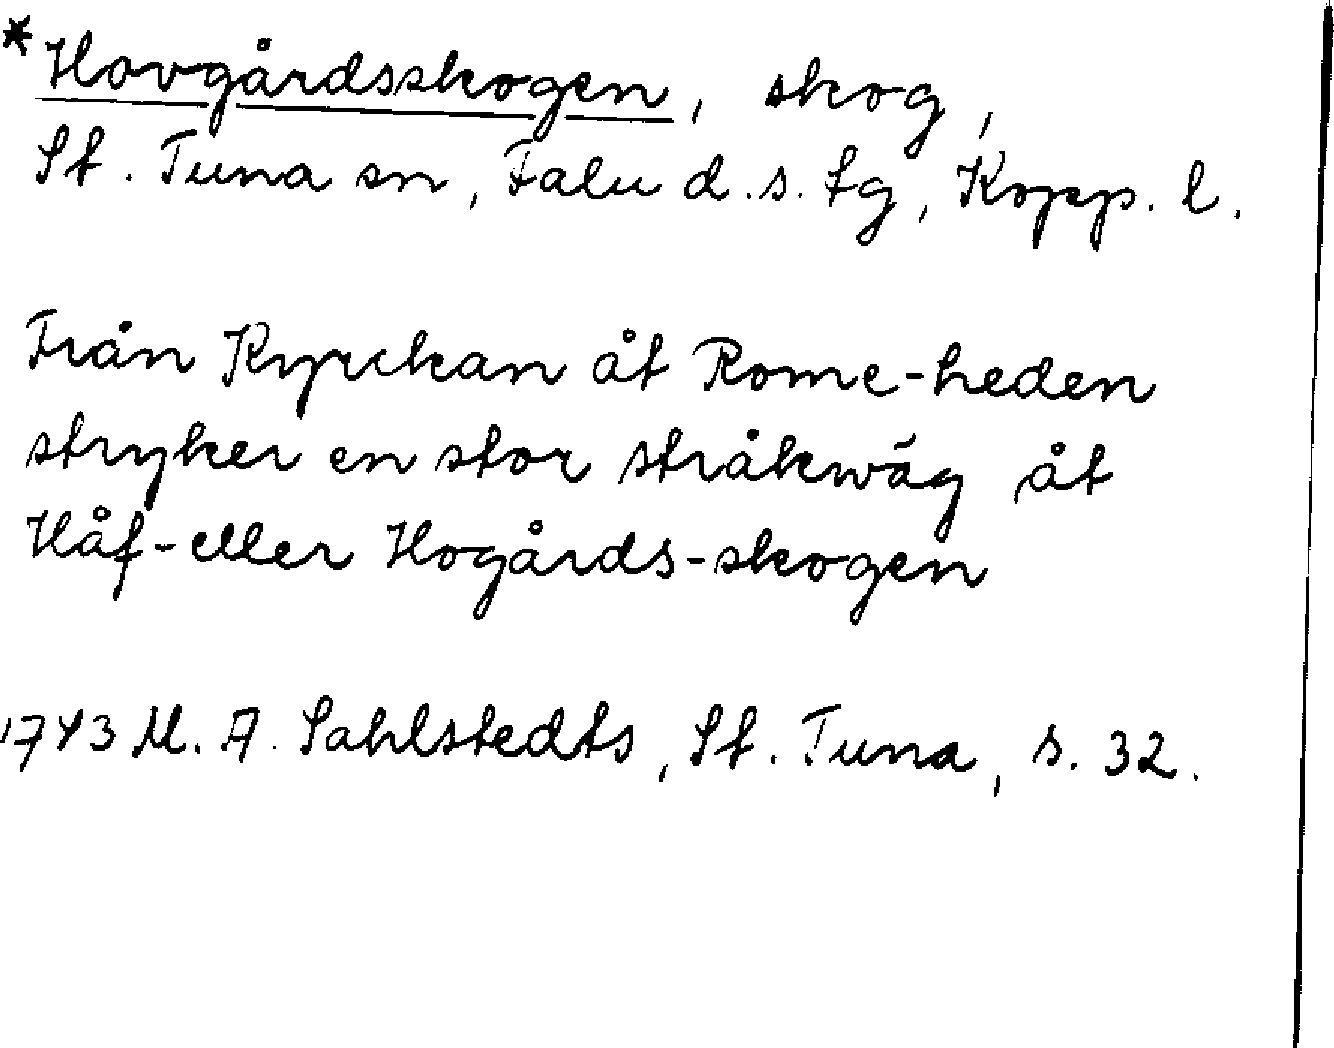 *Hovgårdsskogen, skog,
St. Tuna sn, Falu d.s. tg, Kopp. l.
Från Kyrckan åt Rome-heden
stryker en stor stråkwäg åt
Håf- eller Hogårds-skogen
1743 M. A. Sahlstedts, St. Tuna, s. 32.